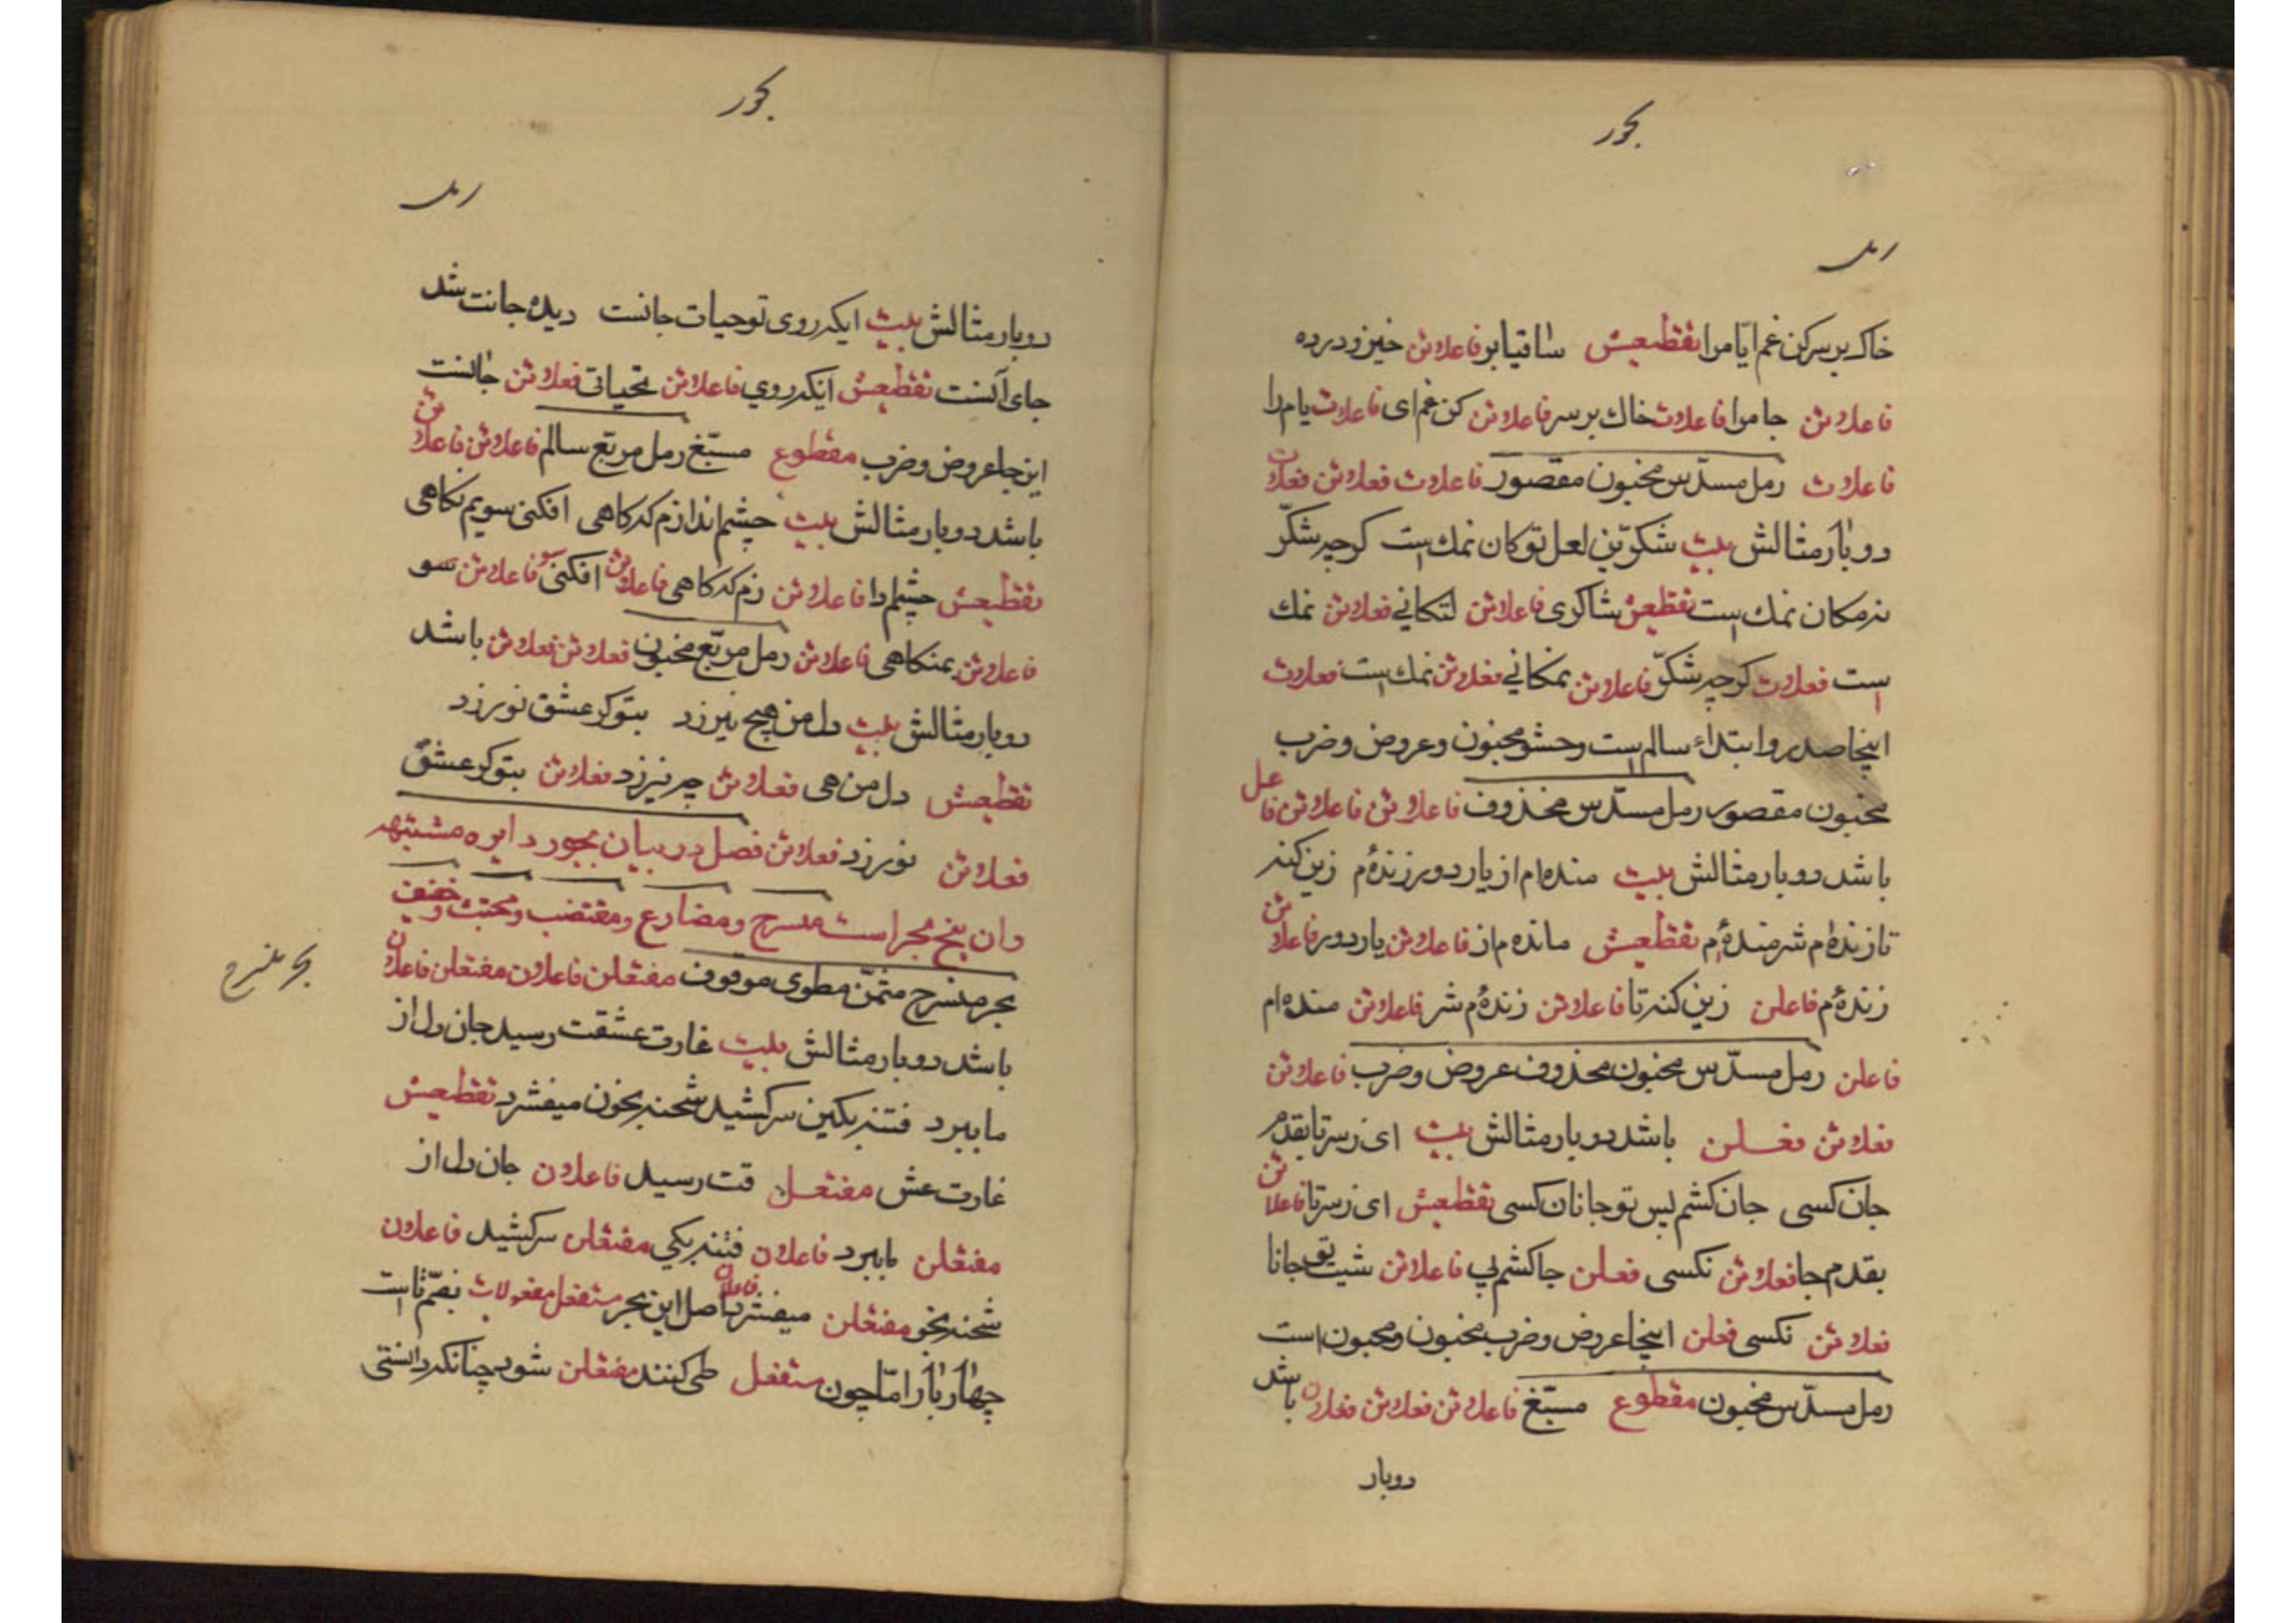 بحور
رمل
خاک بر سر کن غم ایّام را تقطیعش ساقیا بر فاعلاتن خیز و درده
فاعلاتن جام را فاعلات خاک بر سر فاعلاتن کن غم ای فاعلات یام را
فاعلات رمل مسدّس مخبون مقصور فاعلات فعلاتن فعلات
دوبار مثالش بیت شکرّین لعل تو کان نمک است کرچه شکّر
نه مکان نمک است تقطیعش شاکری فاعلاتن لتکانی فعلاتن نمک
است فعلات کرچه شکّر فاعلاتن نمکانی فعلاتن نمک است فعلات
اینجا صدر وابتداء سالم است وحشو مخبون وعروض وضرب
مخبون مقصور رمل مسدّس محذوف فاعلاتن فاعلاتن فاعل
باشد دوبار مثالش بیت منده ام از یار دور زنده م زین کنه
تا زنده ام شرمنده م تقطیعش مانده م از فاعلاتن یار دور فاعلاتن
زنده م فاعلن زین کنه تا فاعلاتن زنده م شر فاعلاتن منده ام
فاعلن رمل مسدّس مخبون محذوف عروض وضرب فاعلاتن
فعلاتن فعلن باشد دوبار مثالش بیت ای ز سر تا بقدم
جان کسی جان کشم لبس تو جانان کسی تقطیعش ای ز سر تا فاعلاتن
بقدم جا فعلاتن نکسی فعلن جا کشم لپ فاعلاتن شیت تو جانا
فعلاتن نکسی فعلن اینجا عروض وضرب مخبون ومخبون است
رمل مسدّس مخبون مقطوع مسبّغ فاعلاتن فعلاتن فعلان باشد
دوبار
بحور
رمل
دوبار مثالش بیت ایکه روی تو حیات جانست دیده جانت شد
جای آنست تقطیعش ایکه روی فاعلاتن تحیاتی فعلاتن جانست
این جا عروض وضرب مقطوع مسبّغ رمل مربّع سالم فاعلاتن فاعلاتن
باشد دوبار مثالش بیت چشم اندازم که کاهی افکنی سویم نکاهی
تقطیعش چشم دا فاعلاتن زم که کاهی فاعلاتن افکنی سو فاعلاتن سو
فاعلاتن یمنکاهی فاعلاتن رمل مربّع مخبون فعلاتن فعلاتن باشد
دوبار مثالش بیت دل من هیچ نیرزد بتو کر عشق نورزد
تقطیعش دل من هی فعلاتن چه نیرزد فعلاتن بتو کر عشق
فعلاتن نورزد فعلاتن فصل در بیان بحور دایره مشتبهه
وان پنج بحر است منسرح ومضارع ومقتضب ومجتث وخفیف
بحر منسرح مثمّن مطوی موقوف مفتعلن فاعلان مفتعلن فاعلان
بحر منسرح
باشد دوبار مثالش بیت غارت عشقت رسید جان دل از
ما ببرد فتنه بکین سر کشید شحنه بخون میفشرد تقطیعش
غارت عش مفتعل قت رسید فاعلان جان دل از
مفتعلن ما ببرد فاعلان فتنه بکی مفتعلن سرکشید فاعلان
شحنه بخو مفتعلن میفشرد فاعلان اصل این بحر مستفعل مفعولات بضمّ تا است
چهار بار امّا چون مستفعل طی کنند مفتعلن شود چنانکه دانستی